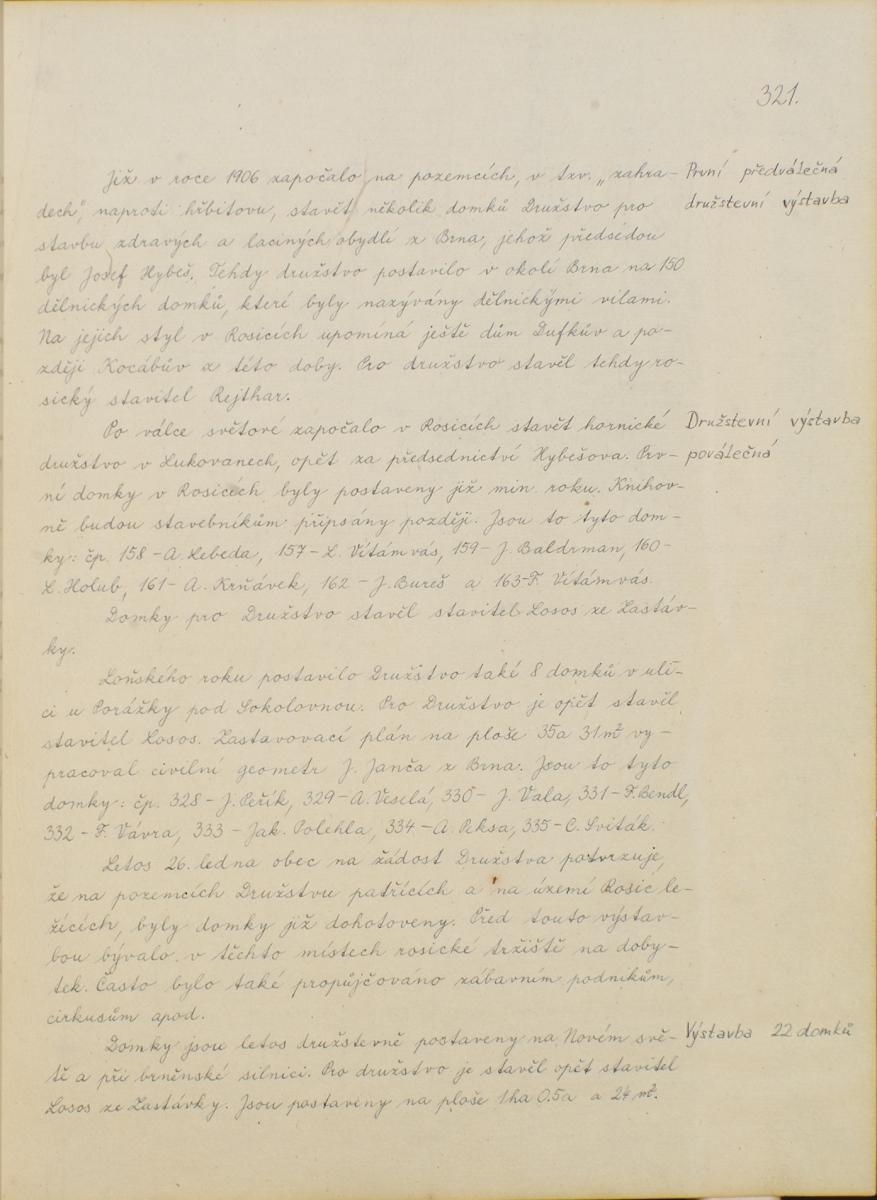 321.
Již v roce 1906 započalo na pozemcích, v tzv. „zahra-
dech", naproti hřbitovu, stavět několik domků Družstvo pro
stavbu zdravých a laciných obydlí z Brna, jehož předsedou
byl Josef Hybeš. Tehdy družstvo postavilo v okolí Brna na 150
dělnických domků, které byly nazývány dělnickými vilami.
Na jejich styl v Rosicích upomíná ještě dům Dufkův a po-
zději Kocábův z této doby. Pro družstvo stavěl tehdy ro-
sický stavitel Rejthar.
První předválečná
družstevní výstavba
Po válce světové započalo v Rosicích stavět hornické
družstvo v Lukovanech, opět za předsednictví Hybešova. Prv-
ní domky v Rosicích byly postaveny již min. roku. Knihov-
ně budou stavebníkům připsány později. Jsou to tyto dom-
ky: čp. 158 - A. Lebeda, 157 - L. Vítámvás, 159 - J. Baldrman, 160 -
L. Holub, 161 - A. Krňávek, 162 - J. Bureš a 163 - F. Vítámvás.
Družstevní výstavba
poválečná
Domky pro Družstvo stavěl stavitel Losos ze Zastáv-
ky.
Loňského roku postavilo Družstvo také 8 domků v uli-
ci u Porážky pod Sokolovnou. Pro Družstvo je opět stavěl
stavitel Losos. Zastavovací plán na ploše 35a 31m² vy-
pracoval civilní geometr J. Janča z Brna. Jsou to tyto
domky: čp. 328 - J. Peřík, 329 - A. Veselá, 330 - J. Vala, 331 - F. Bendl,
332 - F. Vávra, 333 - Jak. Polehla, 334 - A. Peksa, 335 - C. Sviták.
Letos 26. ledna obec na žádost Družstva potvrzuje,
že na pozemcích Družstvu patřících a na území Rosic le-
žících, byly domky již dohotoveny. Před touto výstav-
bou bývalo v těchto místech rosické tržiště na doby-
tek. Často bylo také propůjčováno zábavním podnikům,
cirkusům apod.
Domky jsou letos družstevně postaveny na Novém svě-
tě a při brněnské silnici. Pro družstvo je stavěl opět stavitel
Losos ze Zastávky. Jsou postaveny na ploše 1ha 0.5a a 24 m².
Výstavba 22 domků